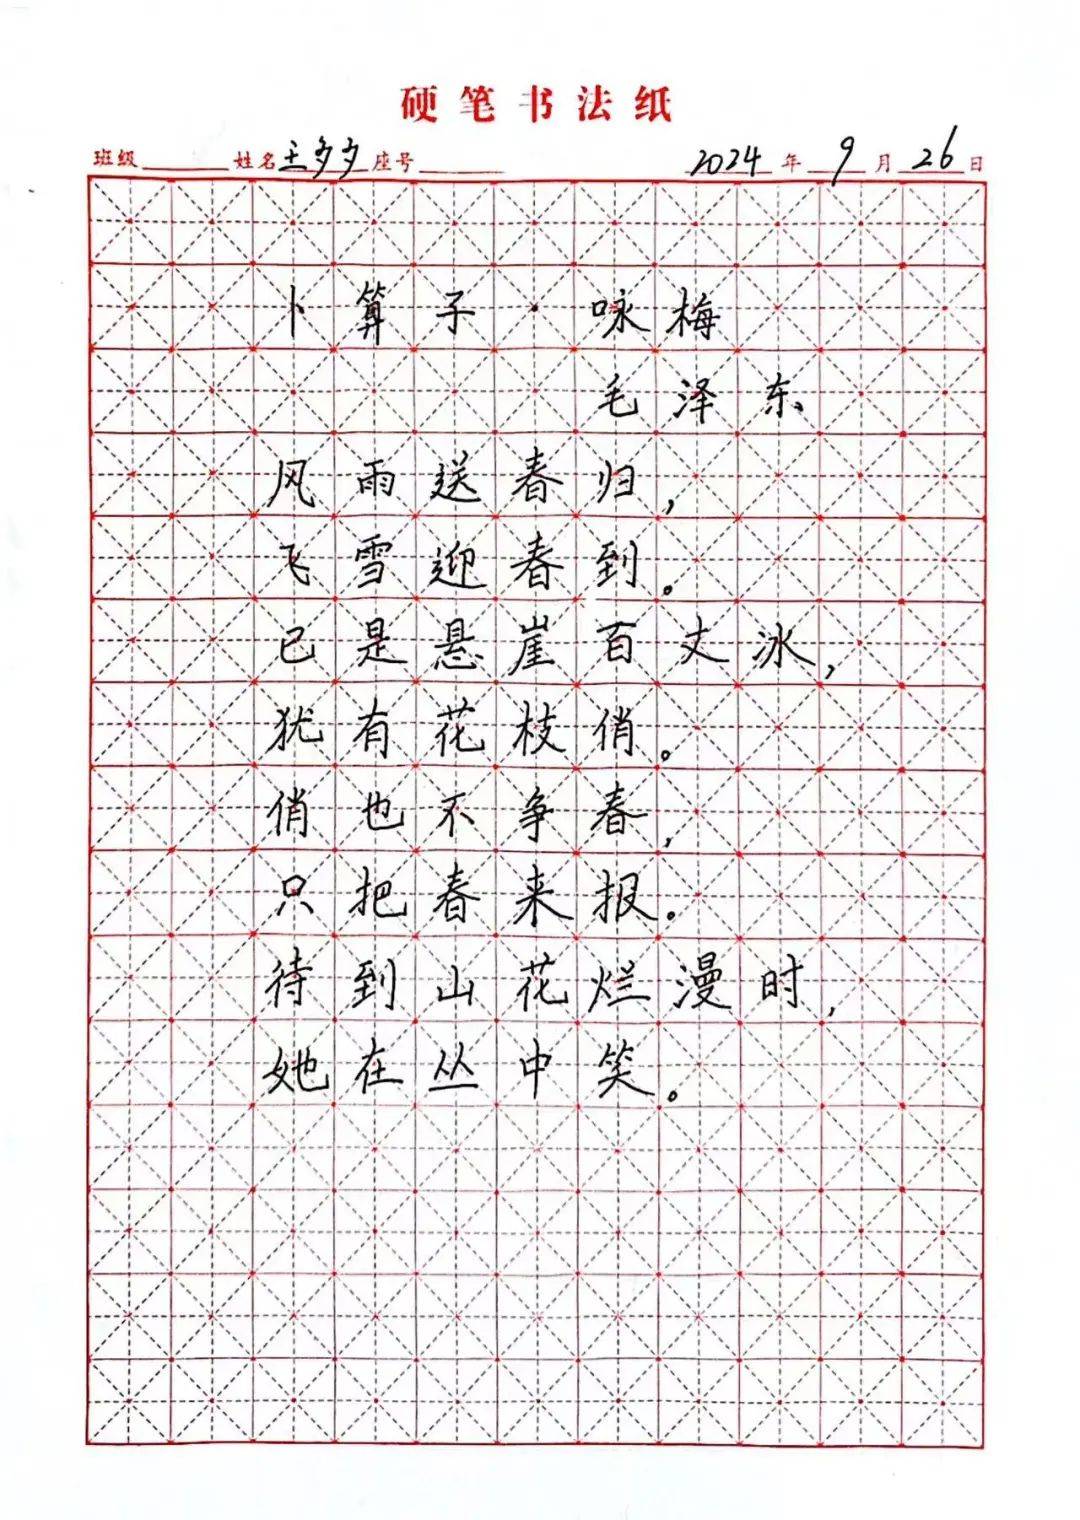 硬笔书法纸
班级 姓名 王多多 座号 2024 年 9 月 26 日
卜算子·咏梅
毛泽东
风雨送春归，
飞雪迎春到。
已是悬崖百丈冰，
犹有花枝俏。
俏也不争春，
只把春来报。
待到山花烂漫时，
她在丛中笑。